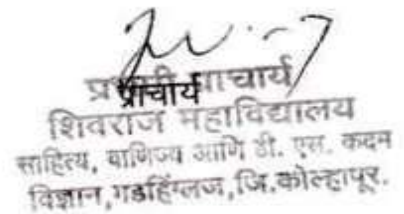 प्रभारी प्राचार्य
प्राचार्य
शिवराज महाविद्यालय
साहित्य, वाणिज्य आणि डी. एस. कदम
विज्ञान,गडहिंग्लज,जि.कोल्हापूर.